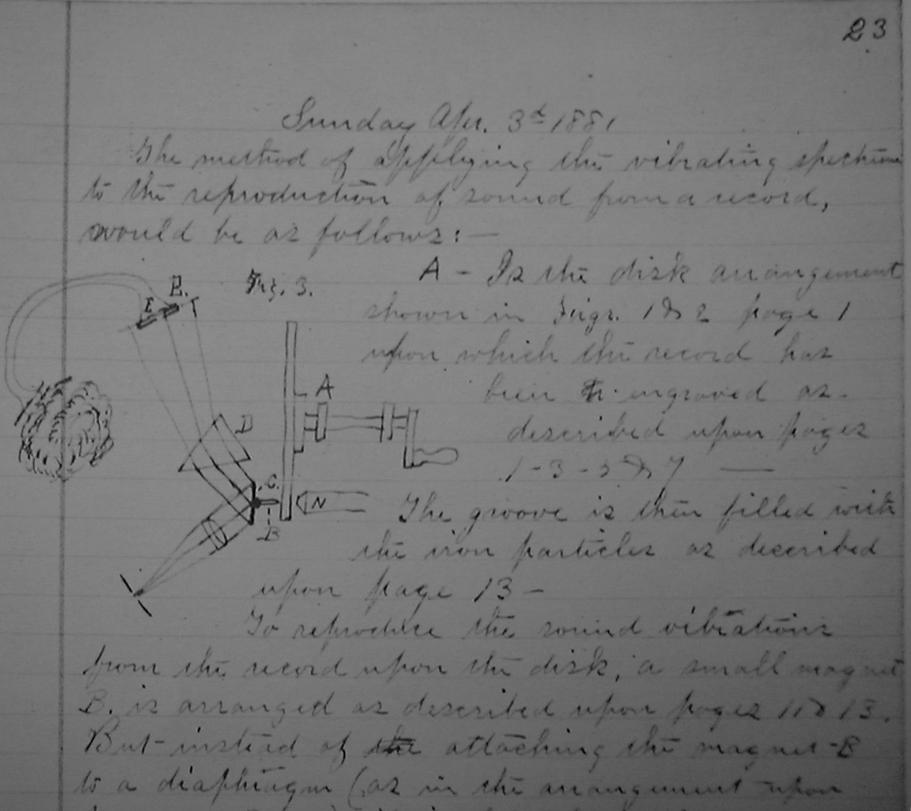 23
Sunday Apr. 3d 1881
The method of applying the vibrating spectrum
to the reproduction of sound from a record,
would be as follows:—
A - Is the disk arrangement
shown in Figs. 1 & 2 page 1
upon which the record has
been engraved as
described upon pages
1-3-5 & 7 —
The groove is then filled with
the iron particles as described
upon page 13 -
To reproduce the sound vibrations
from the record upon the disk, a small magnet
B. is arranged as described upon pages 11 & 13.
But instead of the attaching the magnet B
to a diaphragm (as in the arrangement upon
Fig. 3.
E
E.
D
A
C.
B
N